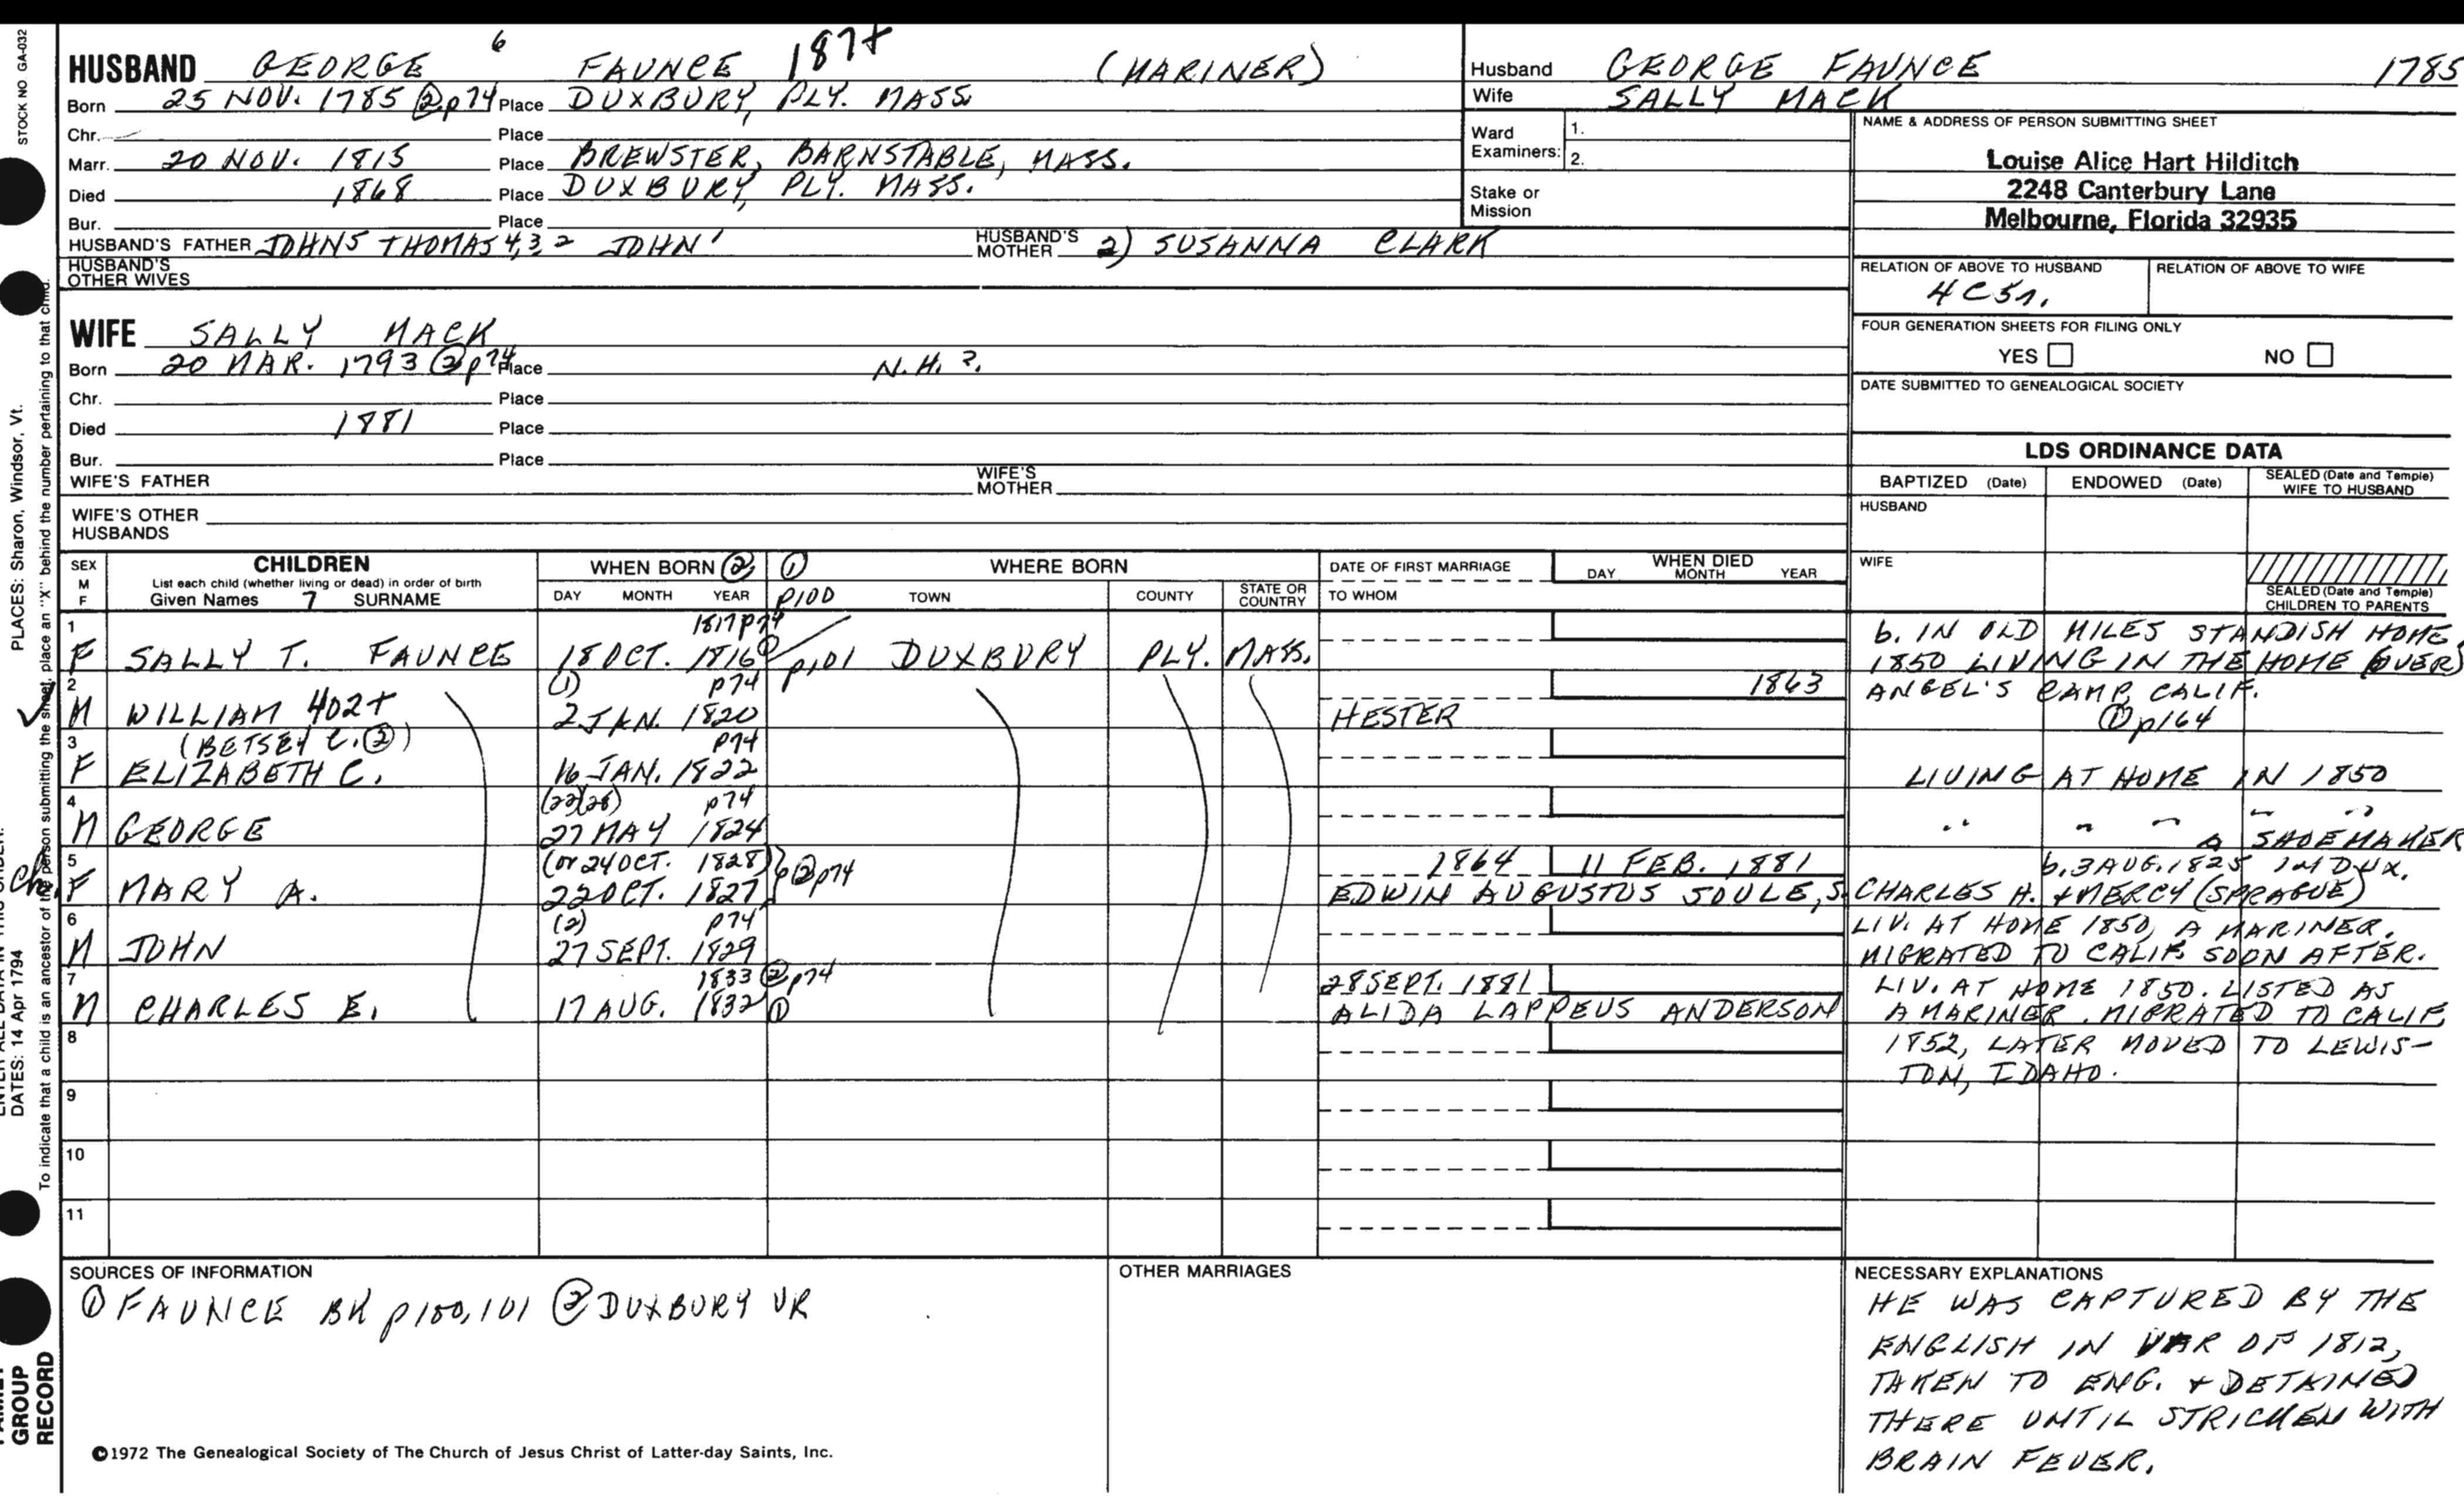 STOCK NO GA-032
HUSBAND GEORGE 6 FAUNCE 187+ (MARINER)
Born 25 NOV. 1785 ② p74 Place DUXBURY, PLY. MASS
Chr. Place
Marr. 20 NOV. 1815 Place BREWSTER, BARNSTABLE, MASS.
Died 1868 Place DUXBURY, PLY. MASS.
Bur. Place
HUSBAND'S FATHER JOHN5 THOMAS 4,3 2 JOHN' HUSBAND'S MOTHER 2) SUSANNA CLARK
HUSBAND'S OTHER WIVES
WIFE SALLY MACK
Born 20 MAR. 1793 ② p74 Place N.H. ?.
Chr. Place
Died 1881 Place
Bur. Place
WIFE'S FATHER WIFE'S MOTHER
WIFE'S OTHER HUSBANDS
Husband GEORGE FAUNCE 1785
Wife SALLY MACK
Ward Examiners: 1. 2.
Stake or Mission
NAME & ADDRESS OF PERSON SUBMITTING SHEET
Louise Alice Hart Hilditch
2248 Canterbury Lane
Melbourne, Florida 32935
RELATION OF ABOVE TO HUSBAND RELATION OF ABOVE TO WIFE
4C5r.
FOUR GENERATION SHEETS FOR FILING ONLY
YES NO
DATE SUBMITTED TO GENEALOGICAL SOCIETY
LDS ORDINANCE DATA
BAPTIZED (Date) ENDOWED (Date) SEALED (Date and Temple) WIFE TO HUSBAND
HUSBAND
WIFE
SEALED (Date and Temple) CHILDREN TO PARENTS
SEX M F
CHILDREN
List each child (whether living or dead) in order of birth
Given Names 7 SURNAME
WHEN BORN ② ① WHERE BORN
DAY MONTH YEAR p100 TOWN COUNTY STATE OR COUNTRY
DATE OF FIRST MARRIAGE
TO WHOM
WHEN DIED
DAY MONTH YEAR
1 1817 p74
F SALLY T. FAUNCE 18 OCT. 1816 ① p101 DUXBURY PLY. MASS.
b. IN OLD MILES STANDISH HOME
1850 LIVING IN THE HOME (OVER)
2 (1) p74 1863 ANGEL'S CAMP, CALIF.
M WILLIAM 402+ 2 JAN. 1820 HESTER ① p164
3 (BETSEY C. ②) p74
F ELIZABETH C. 16 JAN. 1822 LIVING AT HOME IN 1850
4 (22)(28) p74
M GEORGE 27 MAY 1824 " " " " "
A SHOEMAKER
5 (or 24 OCT. 1828) ② p74 1864 11 FEB. 1881 b. 3 AUG. 1825 IN DUX.
ch. F MARY A. 22 OCT. 1827 EDWIN AUGUSTUS SOULE, S. CHARLES H. + MERCY (SPRAGUE)
6 (2) p74 LIV. AT HOME 1850, A MARINER.
M JOHN 27 SEPT. 1829 MIGRATED TO CALIF. SOON AFTER.
7 1833 ② p74 28 SEPT. 1881 LIV. AT HOME 1850. LISTED AS
M CHARLES E. 17 AUG. 1832 ① ALIDA LAPPEUS ANDERSON A MARINER. MIGRATED TO CALIF.
8 1852, LATER MOVED TO LEWIS-
TON, IDAHO.
9
10
11
SOURCES OF INFORMATION
① FAUNCE BK p100,101 ② DUXBURY VR
OTHER MARRIAGES
NECESSARY EXPLANATIONS
HE WAS CAPTURED BY THE
ENGLISH IN WAR OF 1812,
TAKEN TO ENG. + DETAINED
THERE UNTIL STRICKEN WITH
BRAIN FEVER.
©1972 The Genealogical Society of The Church of Jesus Christ of Latter-day Saints, Inc.
PLACES: Sharon, Windsor, Vt.
DATES: 14 Apr 1794
To indicate that a child is an ancestor of the person submitting the sheet, place an "X" behind the number pertaining to that child.
GROUP
RECORD